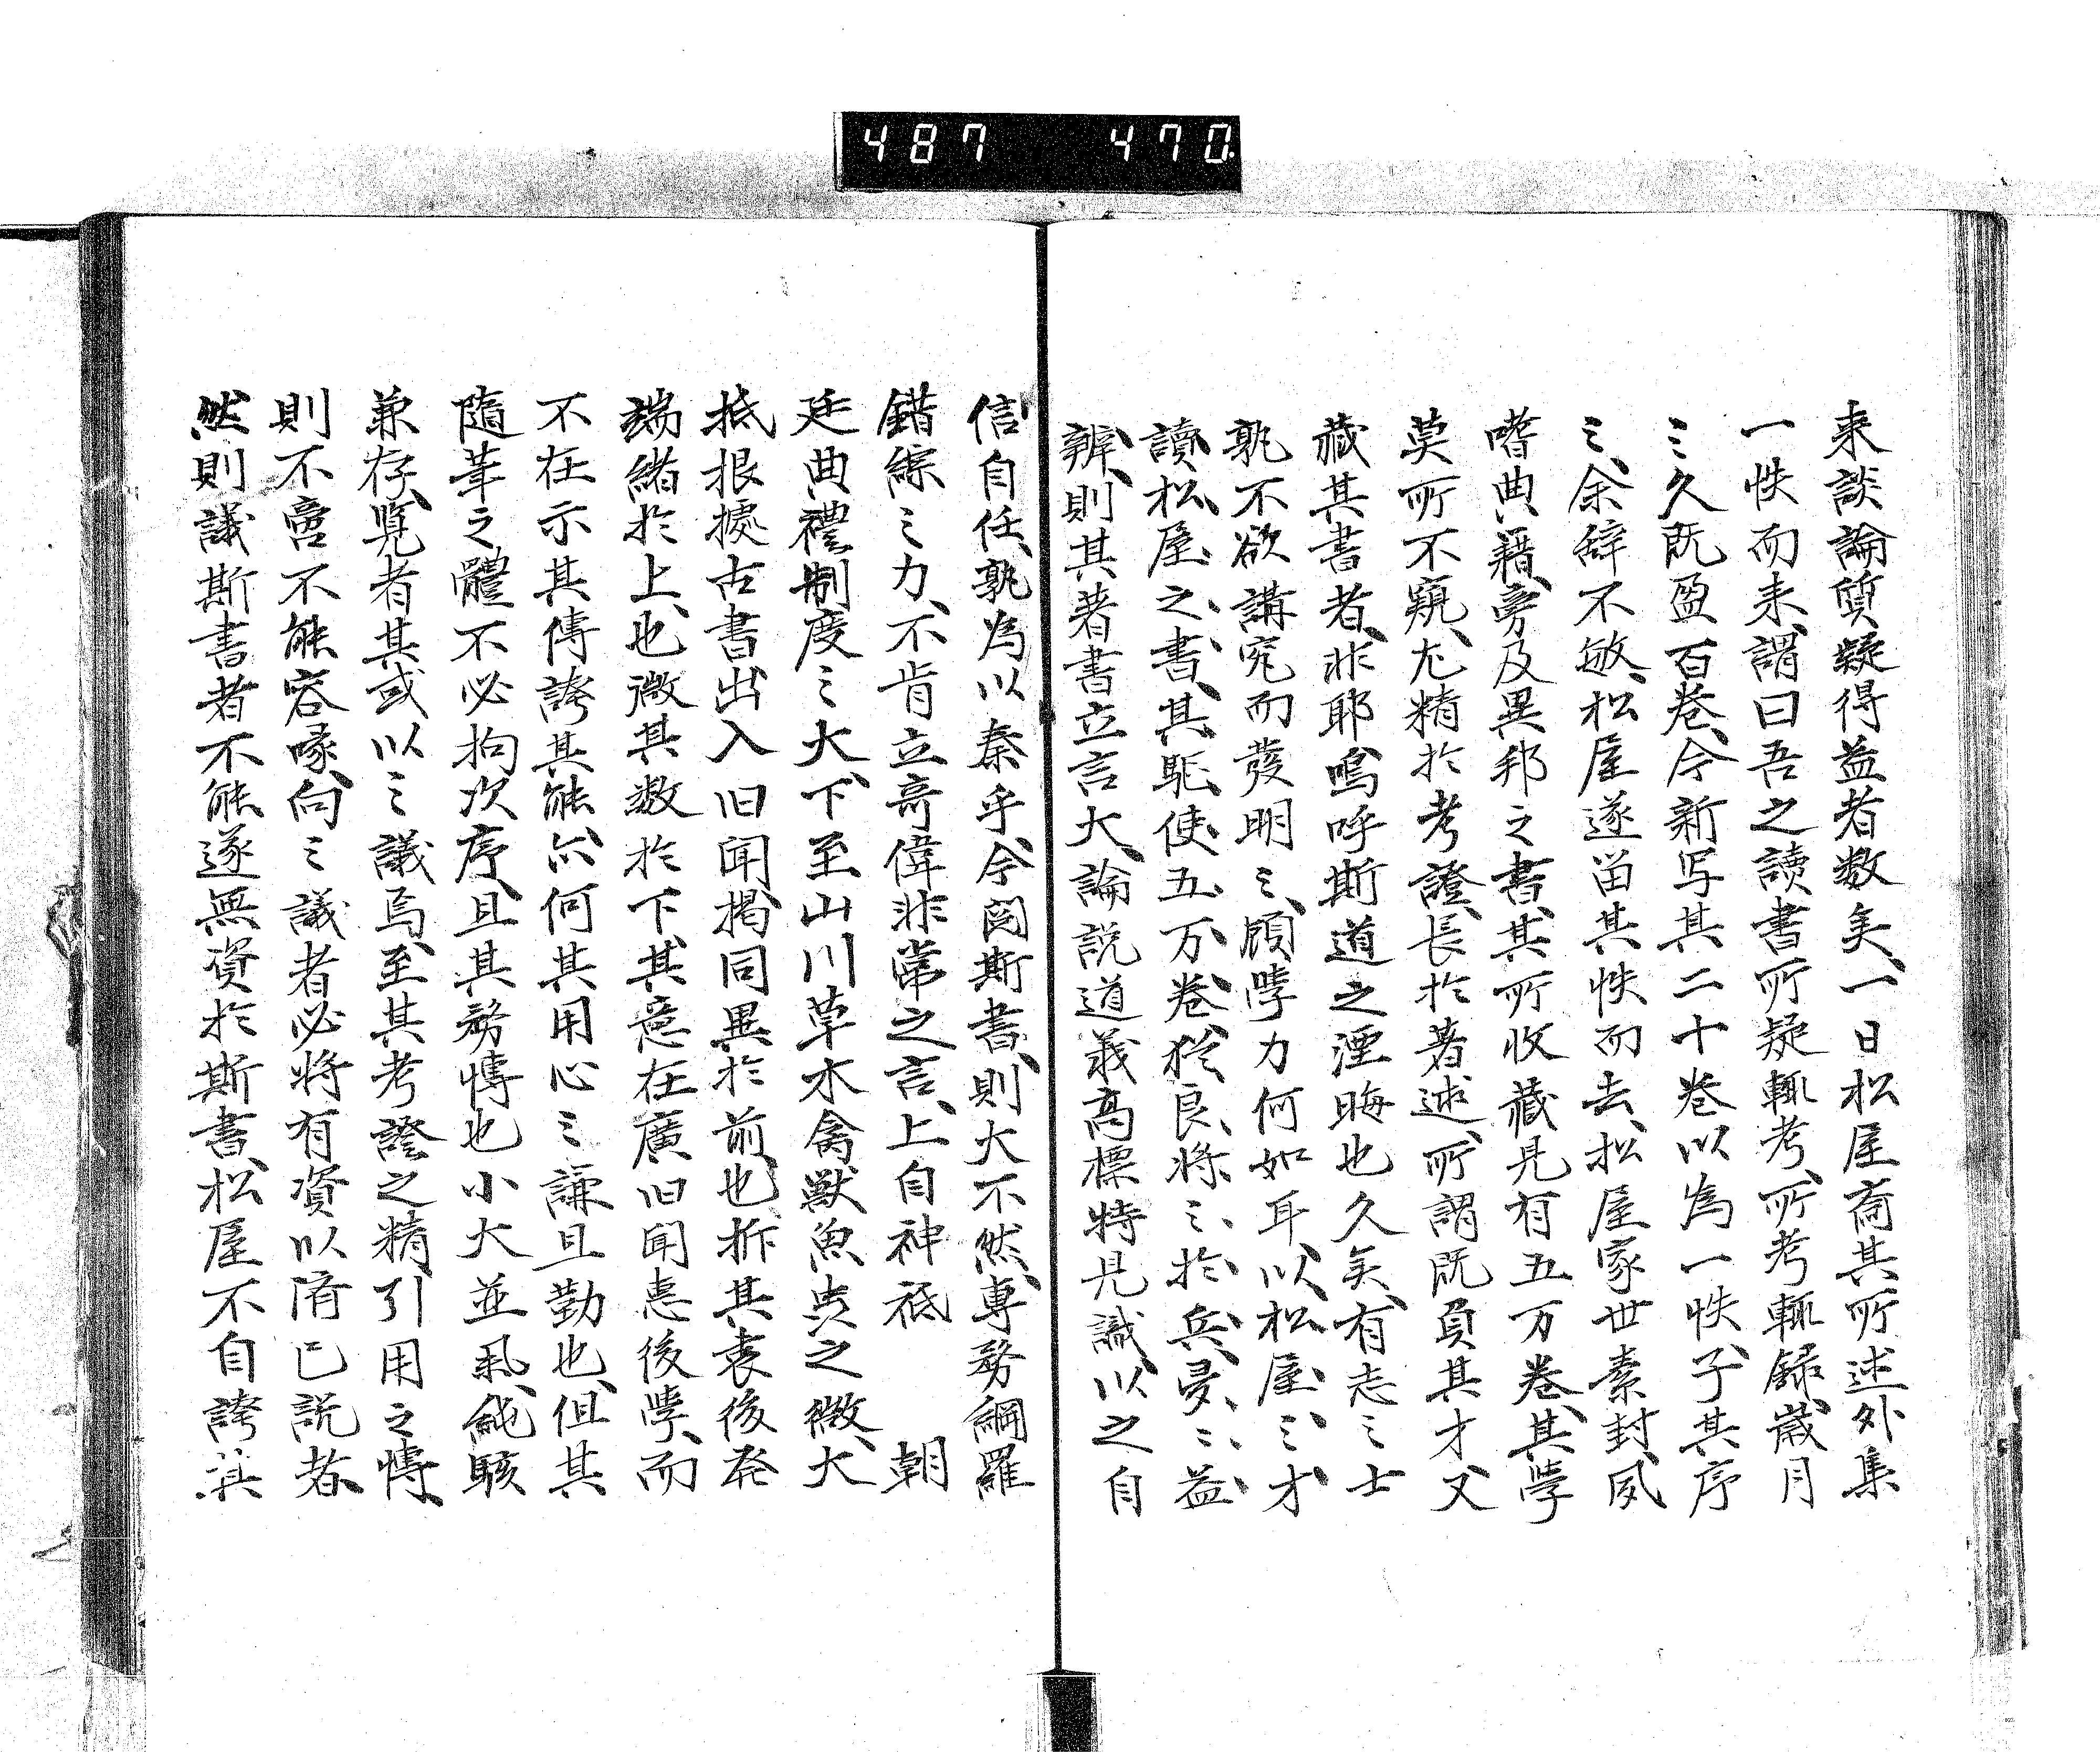 487 470
来談論質疑得益者数矣、一日松屋齎其所述外集
一帙而来、謂曰吾之読書所疑輒考、所考輒録、歳月
之久既盈百巻、今新写其二十巻以為一帙、子其序
之、余辞不敏、松屋遂畄其帙而去、松屋家世素封、夙
嗜典籍、旁及異邦之書、其所收藏凡有五万巻、其學
莫所不窺、尤精於考證、長於著述、所謂既負其才又
藏其書者、非耶嗚呼斯道之湮晦也久矣、有志之士
孰不欲講究而發明之、顧學力何如耳、以松屋之才
讀松屋之書、其駈使五万巻、猶良将之於兵、多々益
辨、則其著書立言大、論説道義高標特見識、以之自
信自任、孰為以泰乎、今閲斯書、則大不然、專務綱羅
錯綜之力、不肯立奇偉非常之言、上自神祇　朝
廷典禮制度之大、下至山川草木禽獣魚虫之微、大
抵根據古書出入旧聞掲同異於前也、拆其衷後発
端緒於上、也微其数於下、其意在廣旧聞恵後學、而
不在示其博誇其能、亦何其用心之謙且勤也、但其
隨筆之體不必拘次序、且其務博也小大並采、純駁
兼存、覧者其或以之議焉、至其考證之精引用之博、
則不啻不能容喙、向之議者必将有資以済己説者、
然則議斯書者不能遂無資於斯書、松屋不自誇其